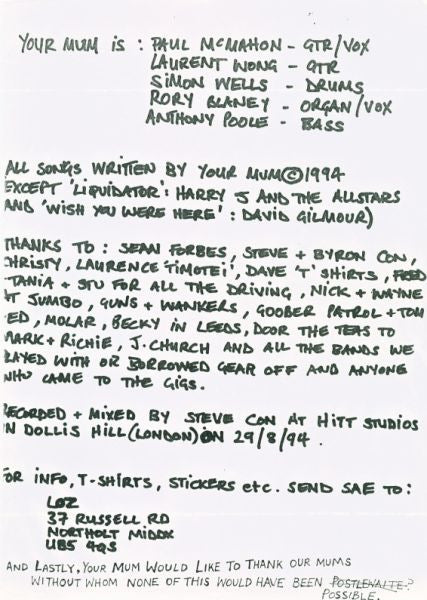 YOUR MUM IS : PAUL MCMAHON - GTR/VOX
LAURENT WONG - GTR
SIMON WELLS - DRUMS
RORY BLANEY - ORGAN/VOX
ANTHONY POOLE - BASS
ALL SONGS WRITTEN BY YOUR MUM © 1994
EXCEPT 'LIQUIDATOR': HARRY J AND THE ALLSTARS
AND 'WISH YOU WERE HERE' : DAVID GILMOUR)
THANKS TO : SEAN FORBES, STEVE + BYRON CON,
CHRISTY, LAURENCE 'TIMOTEI', DAVE 'T' SHIRTS, FRED
TANIA + STU FOR ALL THE DRIVING, NICK + WAYNE
AT JUMBO, GUNS + WANKERS, GOOBER PATROL + TOM
ED, MOLAR, BECKY IN LEEDS, DOOR THE TEAS TO
MARK + RICHIE, J. CHURCH AND ALL THE BANDS WE
LAYED WITH OR BORROWED GEAR OFF AND ANYONE
WHO CAME TO THE GIGS.
RECORDED + MIXED BY STEVE CON AT HITT STUDIOS
IN DOLLIS HILL (LONDON) ON 29/8/94.
FOR INFO, T-SHIRTS, STICKERS etc. SEND SAE TO:
LOZ
37 RUSSELL RD
NORTHOLT MIDDX
UB5 4QS
AND LASTLY, YOUR MUM WOULD LIKE TO THANK OUR MUMS
WITHOUT WHOM NONE OF THIS WOULD HAVE BEEN
POSSIBLE.